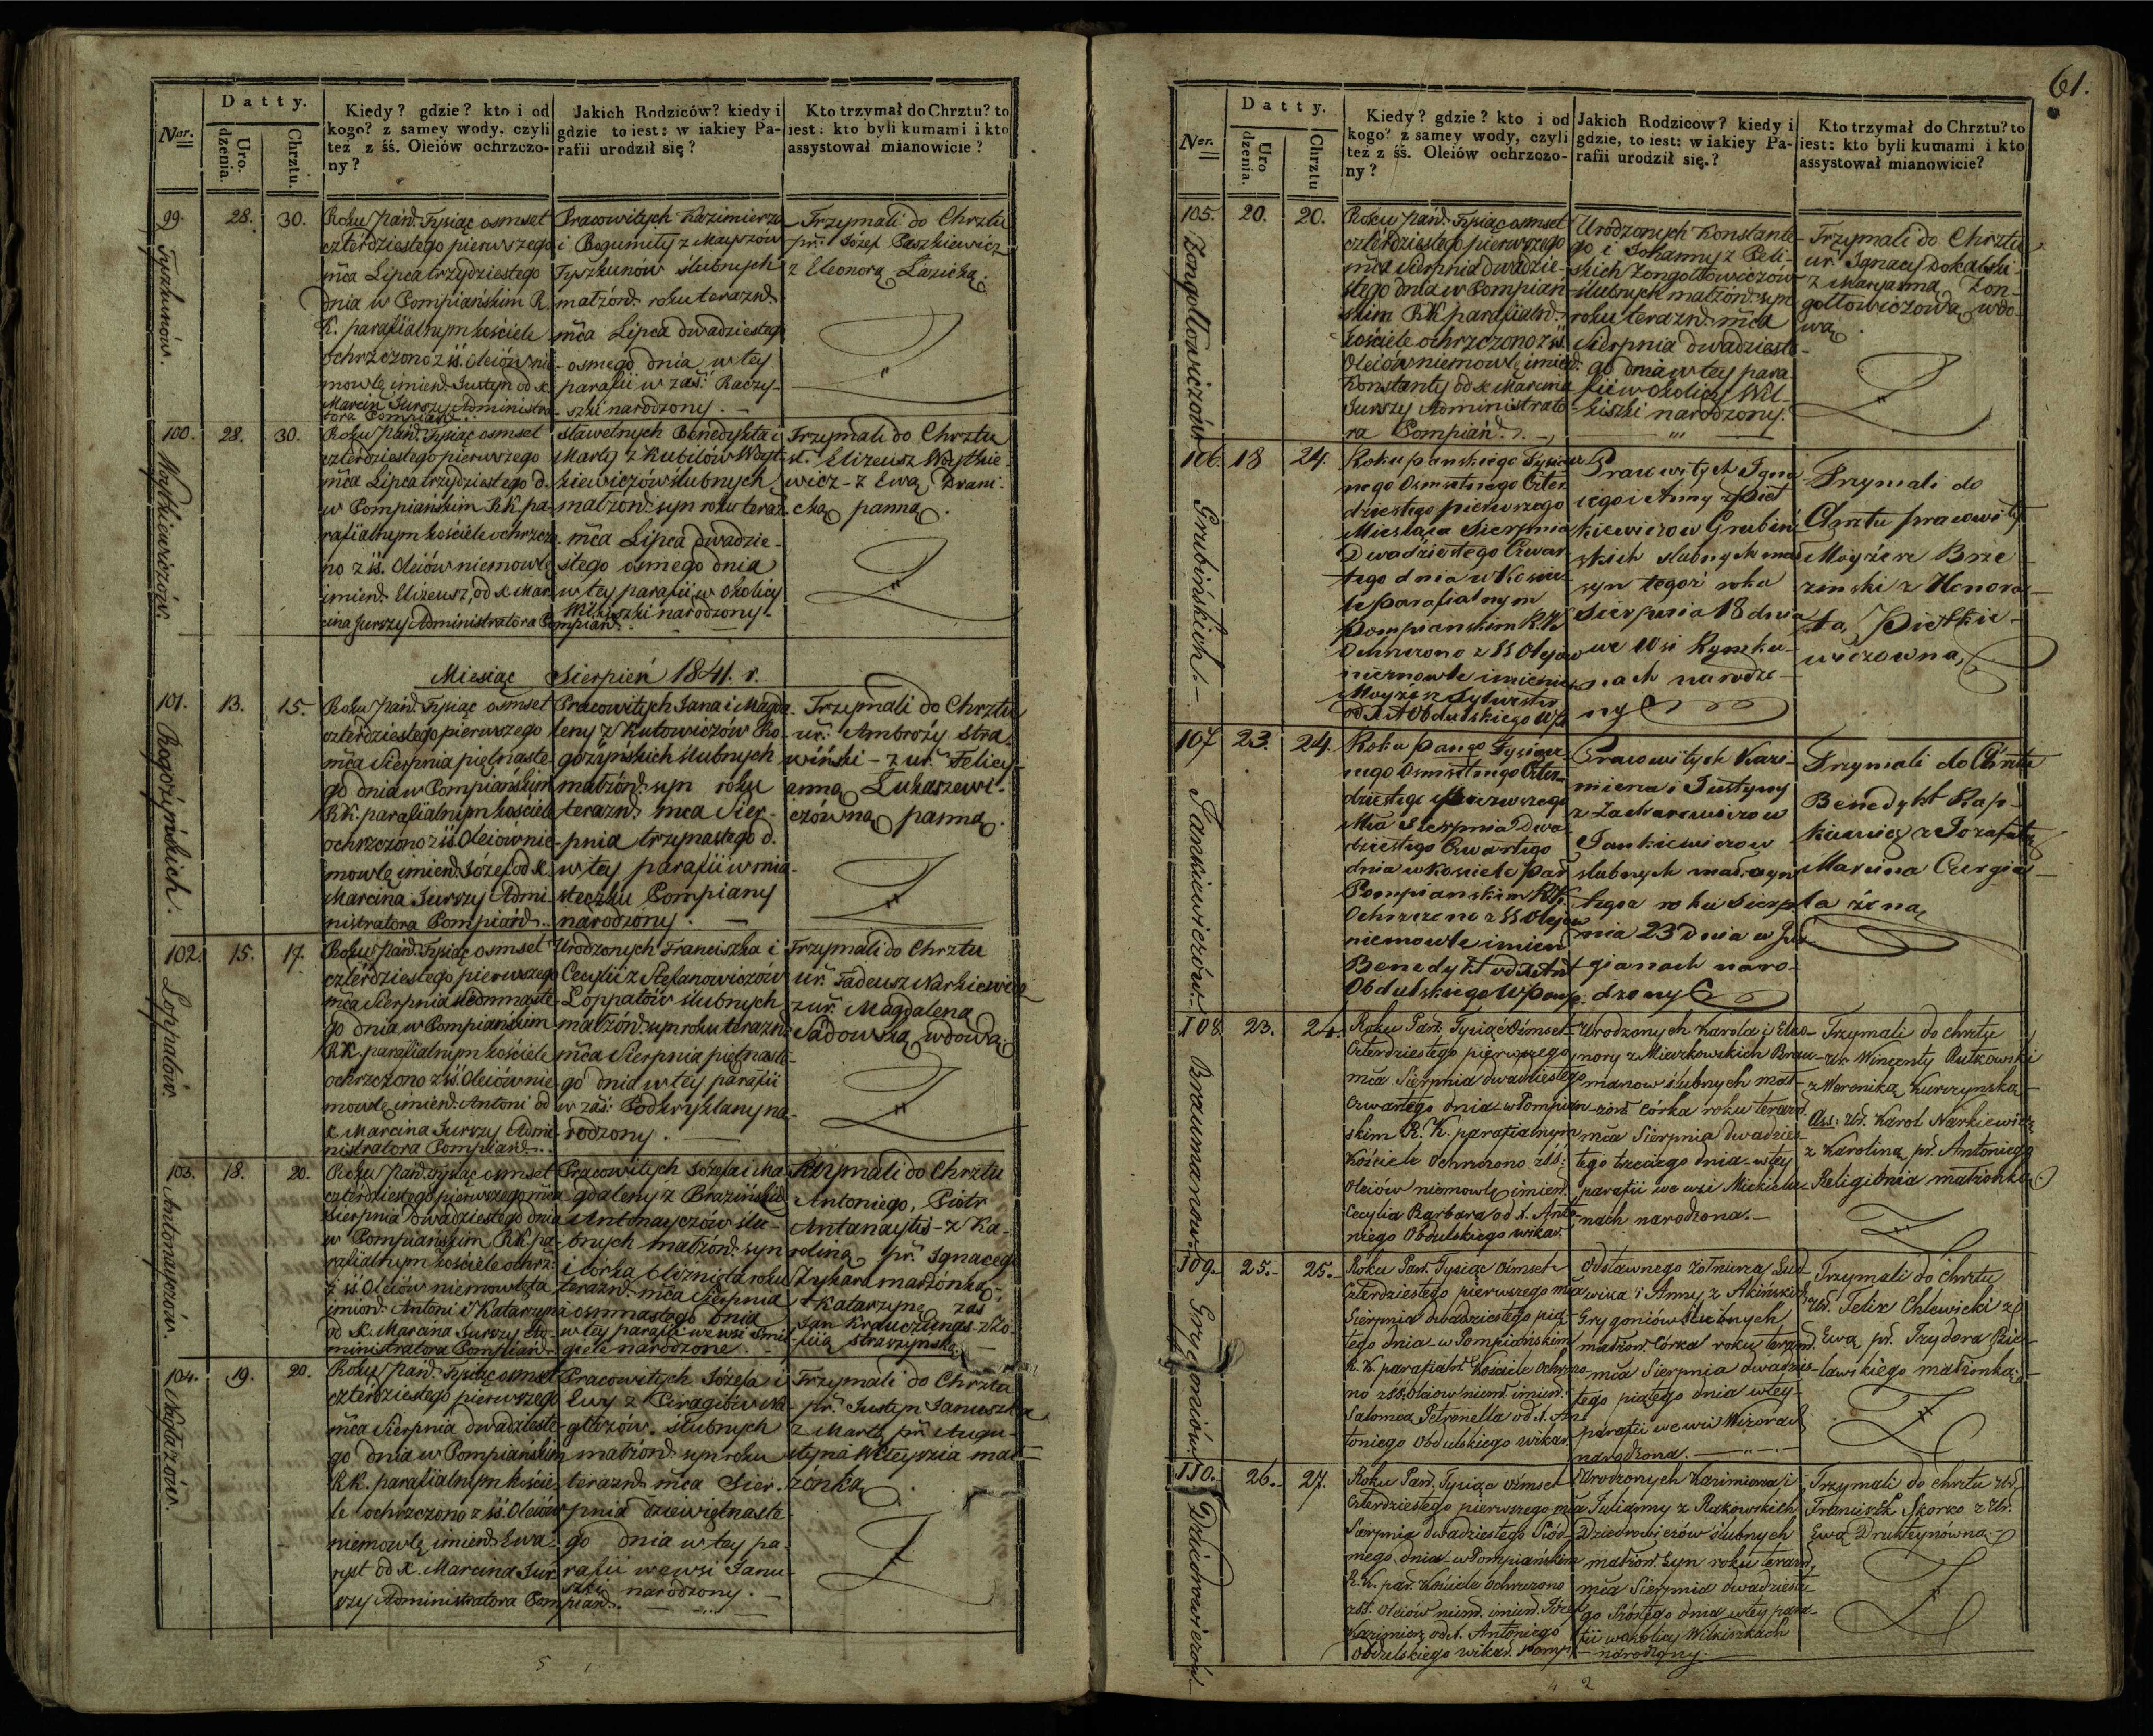 Nar.
Datty.
Uro-
dzenia.
Chrztu.
Kiedy? gdzie? kto i od
kogo? z samey wody, czyli
też z śś. Oleiów ochrzczo-
ny?
Jakich Rodziców? kiedy i
gdzie to iest: w iakiey Pa-
rafii urodził się?
Kto trzymał do Chrztu? to
iest: kto byli kumami i kto
assystował mianowicie?
99.
Tyszkunów.
28.
30.
Roku Pańd. Tysiąc osmset
cztérdziestego pierwszego
mca Lipca trzydziestego
dnia w Pompiańskim R.
K. parafialnym kościele
ochrzczono z śś. Oleiów nie-
mowlę imiend. Justyn od X.
Marcin Jurszy Administra-
tora Pompiand.
Pracowitych Kazimierza
i Bogumiły z Mayszów
Tyszkunów ślubnych
małżónd. roku teraznd.
mca Lipca dwadziestego
osmego dnia w tey
parafii w zaś. Raczy-
szki narodzony.
Trzymali do Chrztu
pr. Józef Paszkiewicz
z Eleonorą Łazicką.
100.
Woytkiewiczów.
28.
30.
Roku Pańd. Tysiąc osmset
cztérdziestego pierwszego
mca Lipca trzydziestego d.
w Pompiańskim R K. pa-
rafialnym kościele ochrzczo-
no z śś. Oleiów niemowlę
imiend. Elizeusz, od X. Mar-
cina Jurszy Administratora Pompiand.
Sławetnych Benedykta i
Marty z Kubilów Woyt-
kiewiczów ślubnych
małżónd. syn roku teraz.
mca Lipca dwadzie-
stego osmego dnia
w tey parafii w Okolicy
Wilkiszki narodzony.
Trzymali do Chrztu
sł. Elizeusz Woytkie-
wicz - z Ewą Drani-
cką panną.
Miesiąc Sierpień 1841. r.
101.
Rogożyńskich.
13.
15.
Roku Pańd. Tysiąc osmset
cztérdziestego pierwszego
mca Sierpnia piętnaste-
go dnia w Pompiańskim
R K. parafialnym kościele
ochrzczono z śś. Oleiów nie-
mowlę imiend. Józef od X.
Marcina Jurszy Admi-
nistratora Pompiand.
Pracowitych Jana i Magda-
leny z Kutowiczów Ro-
gożyńskich ślubnych
małżónd. syn roku
teraznd. mca Sier-
pnia trzynastego d.
w tey parafii w mia-
steczku Pompiany
narodzony.
Trzymali do Chrztu
ur. Ambroży Stra-
wiński - z ur. Felicy-
anną Łukaszewi-
czówną panną.
102.
Loppatów.
15.
17.
Roku Pańd. Tysiąc osmset
cztérdziestego pierwszego
mca Sierpnia siedmnaste-
go dnia w Pompiańskim
R K. parafialnym kościele
ochrzczono z śś. Oleiów nie-
mowlę imiend. Antoni od
X. Marcina Jurszy Admi-
nistratora Pompiand.
Urodzonych Franciszka i
Cecylii z Stefanowiczów
Loppatów ślubnych
małżónd. syn roku terazn.
mca Sierpnia piętnaste-
go dnia w tey parafii
w zaś. Podkryklany na-
rodzony.
Trzymali do Chrztu
ur. Tadeusz Narkiewicz
z ur. Magdaleną
Sadowską wdową.
103.
Antonayczów.
18.
20.
Roku Pańd. Tysiąc osmset
cztérdziestego pierwszego mca
Sierpnia dwadziestego dnia
w Pompiańskim R K. pa-
rafialnym kościele ochrz:
z śś Oleiów niemowlęta
imiond. Antoni i Katarzyna
od X. Marcina Jurszy Ad-
ministratora Pompiand.
Pracowitych Józefa i Ma-
gdaleny z Brazińskich
Antonayczów ślu-
bnych małżónd. syn
i córka bliźnięta roku
terazn. mca Sierpnia
osmnastego dnia
w tey parafii we wsi Smil-
giele narodzone.
Trzymali do Chrztu
Antoniego, Piotr
Antanaytis - z Ka-
roliną pr. Ignacego
Zykara małżónką.
Katarzynę zaś
Jan Krauczunas - z Zo-
fiią Strarzynską.
104.
19.
20.
Roku Pańd. Tysiąc osmset
cztérdziestego pierwszego
mca Sierpnia dwadzieste-
go dnia w Pompiańskim
R K. parafialnym koście-
le ochrzczono z śś. Oleiów
niemowlę imiend. Ewa-
ryst od X. Marcina Jur-
szy Administratora Pompiand.
Pracowitych Józefa i
Ewy z Ciragiów
ślubnych
małżónd. syn roku
terazn. mca Sier-
pnia dziewiętnaste-
go dnia w tey pa-
rafii we wsi Janu-
szki narodzony.
Trzymali do Chrztu
pr. Justyn Januszka
z Martą pr. Augu-
styna mał-
żónką.
61.
Ner.
Datty.
Uro
dzenia.
Chrztu
Kiedy? gdzie? kto i od
kogo? z samey wody, czyli
też z śś. Oleiów ochrzczo-
ny?
Jakich Rodzicow? kiedy i
gdzie, to iest: w iakiey Pa-
rafii urodził się.?
Kto trzymał do Chrztu? to
iest: kto byli kumami i kto
assystował mianowicie?
105.
Zongołłowiczów.
20.
20.
Roku Pańd. Tysiąc osmset
cztérdziestego pierwszego
mca Sierpnia dwadzie-
stego dnia w Pompiań-
skim R K parafialnd.
kościele ochrzczono z śś.
Oleiów niemowlę imiend.
Konstanty od X. Marcina
Jurszy Administrato-
ra Pompiand.
Urodzonych Konstante-
go i Johanny z Peli-
skich Zongołłowiczów
ślubnych małżónd. syn
roku terazn. mca
Sierpnia dwadzieste-
go dnia w tey para-
fii w Okolicy Wil-
kiszki narodzony.
Trzymali do Chrztu
ur. Ignacy Dokalski
z Maryanną Zon-
gołłowiczową wdo-
wą.
106.
Grubińskich.
18
24.
Roku panskiego Tysiącz-
nego Osmsetnego Czter-
dziestego pierwszego
Miesiąca Sierpnia
Dwadziestego Czwar-
tego dnia w Koscie-
le Parafialnym
Pompianskim R.K.
Ochrzczono z SS Olejow
niemowle imieniem
Moyżesz Sylwester
od X A Obdulskiego W P
Pracowitych Igna-
cego i Anny z Piet-
kiewiczow Grubiń-
skich slubnych mał
syn tegoż roku
Sierpnia 18 dnia
we Wsi Rymku-
nach narodzo-
ny
Trzymali do
Chrztu pracowity
Moyżesz Brze-
zinski z Honora-
tą Pietkie-
wiczowną
107
Jankiewiczów.
23.
24.
Roku pango Tysiącz-
nego Osmsetnego Czter-
dziestego pierwszego
Mca Sierpnia Dwa-
dziestego Czwartego
dnia w Kosciele par
Pompianskim RK.
Ochrzczono z SS Olejow
niemowle imien
Benedykt od X Ant
Obdulskiego W Pomp.
Pracowitych Kazi-
mierza i Justyny
z Zacharewiczow
Jankiewiczow
slubnych mał. syn
tegoż roku Sierp-
nia 23 Dnia w Jur-
gianach naro-
dzony
Trzymali do Chrztu
Benedykt Rap-
kiewicz z Jozafatą
Marcina
żoną
108
Braumanów.
23.
24.
Roku Pań. Tysiąc Ośmset
Czterdziestego pierwszego
mca Sierpnia dwadziestego
Czwartego dnia w Pompian-
skim R. K. parafialnym
Kościele Ochrzczono z śś:
Oleiów niemowlę imiend.
Cecylia Barbara od X. Anto-
niego Obdulskiego wikar.
Urodzonych Karola i Eleo-
nory z Mieczkowskich Brau-
manow ślubnych mał-
żond córka roku terazn.
mca Sierpnia dwadzies-
tego trzeciego dnia w tey
parafii we wsi Mickielu-
nach narodzona.
Trzymali do chrztu
ur. Wincenty Rutkowski
z Weroniką Kurczynską
Ass: Ur. Karol Narkiewicz
z Karoliną pr. Antoniego
Religionia małżonką.
109.
Grygoniów.
25.
25.
Roku Pań. Tysiąc Ośmset
Czterdziestego pierwszego mca
Sierpnia dwadziestego pią-
tego dnia w Pompiańskim
R. K. parafialn. Kościele Ochrzczo-
no z śś. Oleiow niemd. imien.
Salomea Petronella od X. An-
toniego Obdulskiego wikar.
Odstawnego Żołnierza Lud-
wika i Anny z Akińskich
Grygoniów ślubnych
małżon. Córka roku terazn.
mca Sierpnia dwadzies-
tego piątego dnia w tey
parafii we wsi
narodzona.
Trzymali do chrztu
Ur. Felix Chlewicki z
Ewą pr. Izydora Biel-
lawskiego małżonką.
110.
Dziedrowiczów.
26.
27.
Roku Pań. Tysiąc Ośmset
Czterdziestego pierwszego mca
Sierpnia dwadziestego Siód-
mego dnia w Pompiańskim
R. K. par. Kościele Ochrzczono
z śś. Oleiów niemd. imiend. Józef
Kazimierz od X. Antoniego
Obdulskiego wikar. Pomp.
Urodzonych Kazimierza i
Julianny z Rakowskich
Dziedrowiczów ślubnych
małżon. Syn roku terazn.
mca Sierpnia dwadzieste-
go Szóstego dnia w tey para-
fii w okolicy Wilkiszkach
narodzony.
Trzymali do chrztu Ur.
Franciszek Skorko z Ur.
Ewą Drukteynówną.